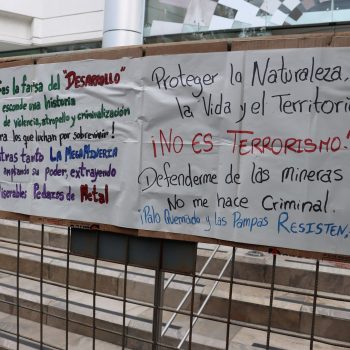 as la farsa del "DESARROLLO"
esconde una historia
de violencia, atropello y criminalización
para los que luchan por sobrevivir!
entras tanto LA MEGAMINERIA
ampliando su poder, extrayendo
iserables Pedazos de Metal
Proteger la Naturaleza,
la Vida y el Territori
¡NO ES TERRORISMO!
Defenderme de las mineras
No me hace Criminal.
¡Palo Quemado y las Pampas RESISTEN,